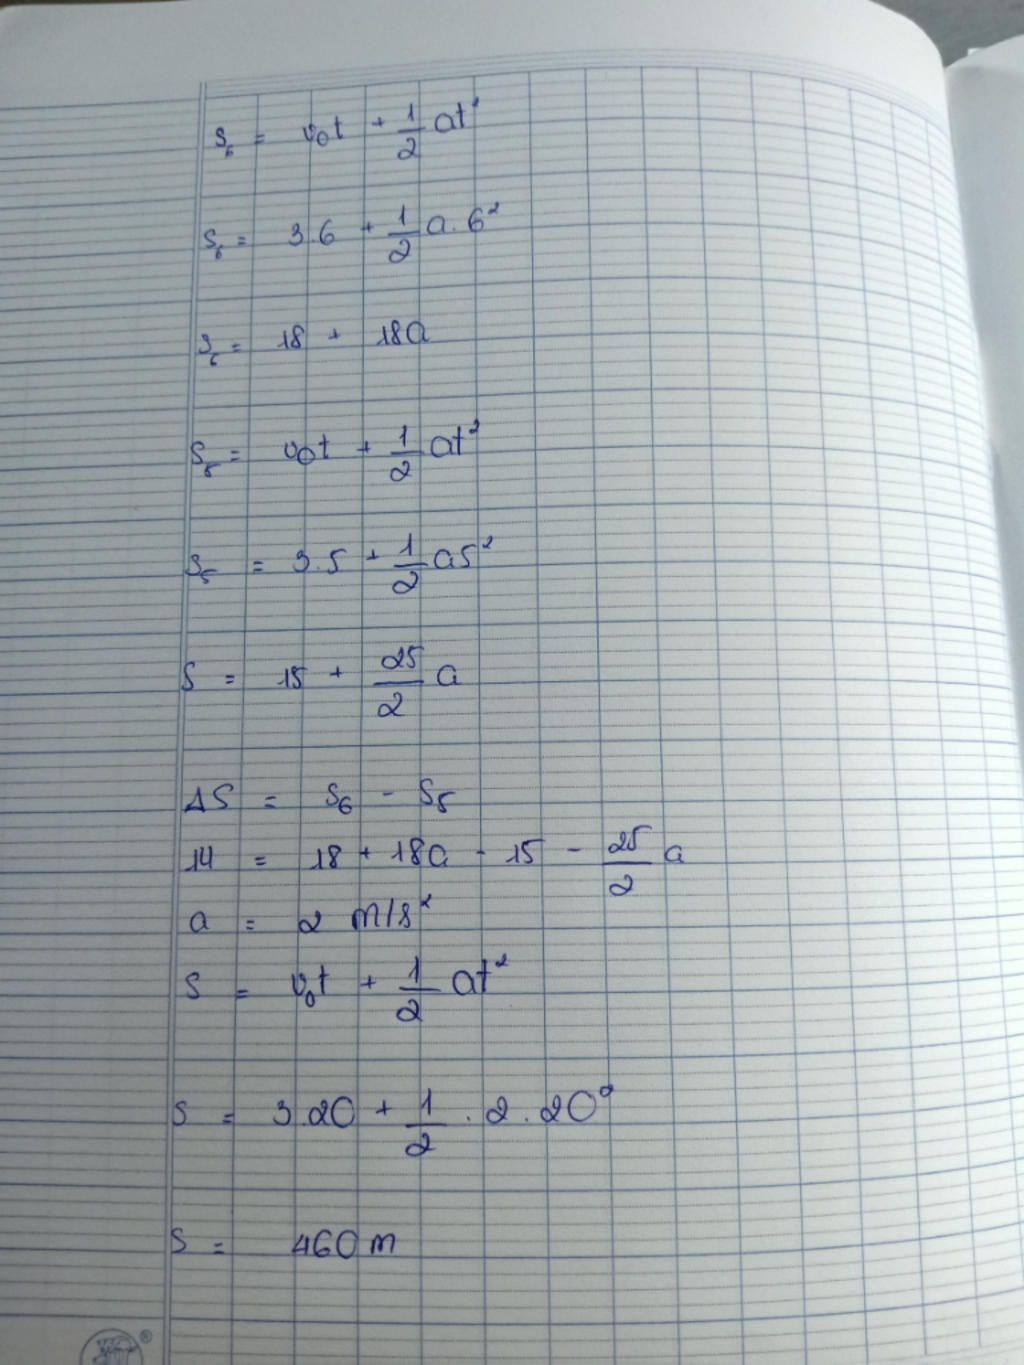 S₆ = v₀t + 1/2 at²
S₆ = 3.6 + 1/2 a.6²
S₆ = 18 + 18a
S₅ = v₀t + 1/2 at²
S₅ = 3.5 + 1/2 a5²
S = 15 + 25/2 a
ΔS = S₆ - S₅
14 = 18 + 18a - 15 - 25/2 a
a = 2 m/s²
S = v₀t + 1/2 at²
S = 3.20 + 1/2 . 2 . 20²
S = 460 m
®